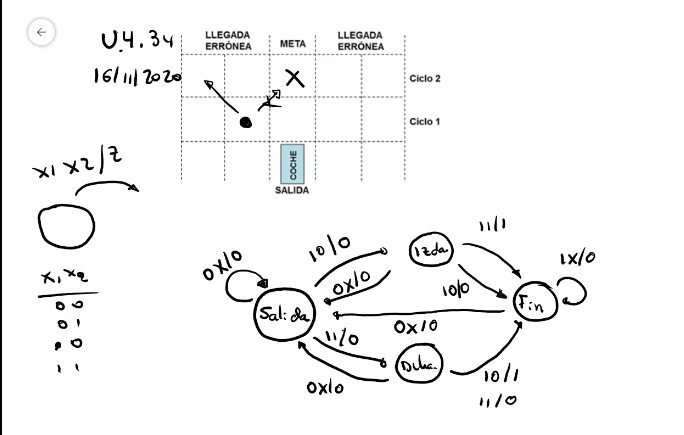 U.4.34
16/11/2020
LLEGADA ERRÓNEA
META
LLEGADA ERRÓNEA
Ciclo 2
Ciclo 1
COCHE
SALIDA
X
x1 x2/z
x1 x2
0 0
0 1
1 0
1 1
0x/0
10/0
0x/0
Izda.
11/1
10/0
1x/0
Fin
Salida
0x/0
11/0
0x/0
Dcha.
10/1
11/0